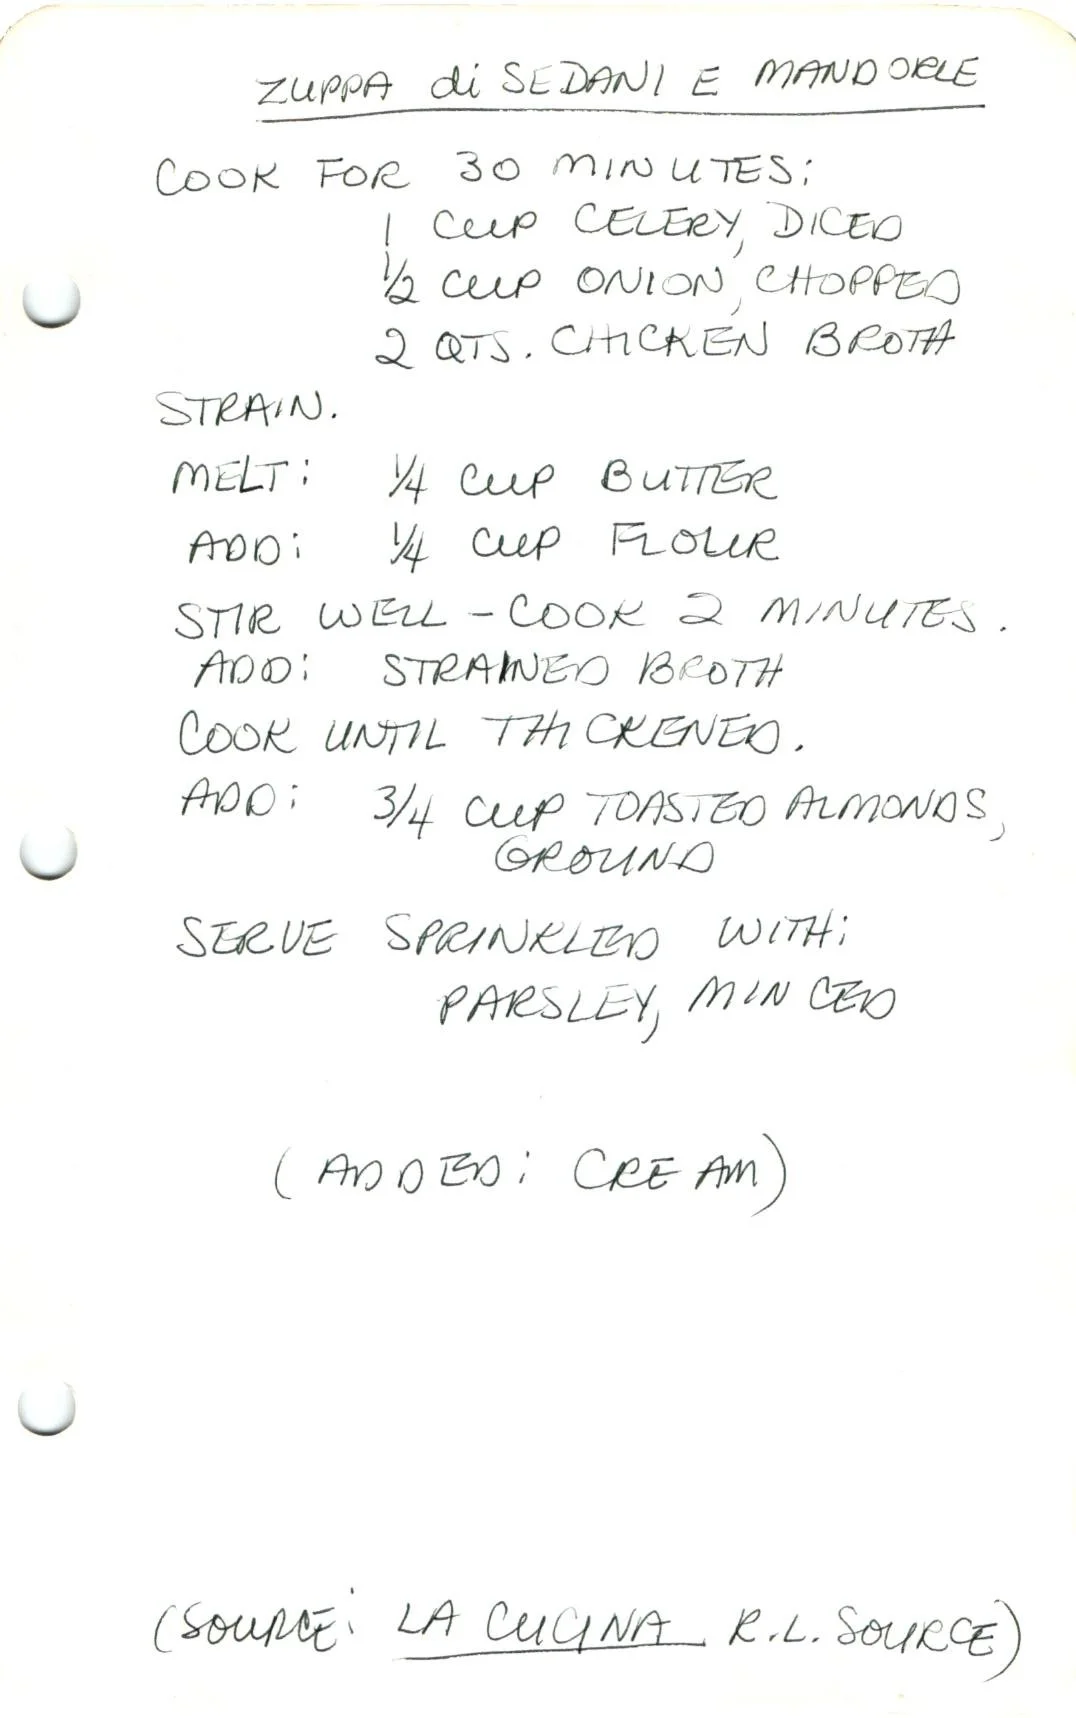 ZUPPA di SEDANI E MANDORLE
COOK FOR 30 MINUTES:
1 CUP CELERY, DICED
1/2 CUP ONION, CHOPPED
2 QTS. CHICKEN BROTH
STRAIN.
MELT: 1/4 CUP BUTTER
ADD: 1/4 CUP FLOUR
STIR WELL - COOK 2 MINUTES.
ADD: STRAINED BROTH
COOK UNTIL THICKENED.
ADD: 3/4 CUP TOASTED ALMONDS,
GROUND
SERVE SPRINKLED WITH:
PARSLEY, MINCED
(ADDED: CREAM)
(SOURCE: LA CUCINA R.L. SOURCE)